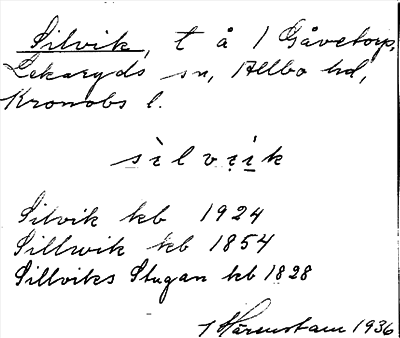 Silvik, t å 1 Gåvetorp,
Lekaryds sn, Allbo hd,
Kronobs l.
sìlviík
Silvik kb 1924
Sillwik kb 1854
Sillviks Stugan kb 1828
1936